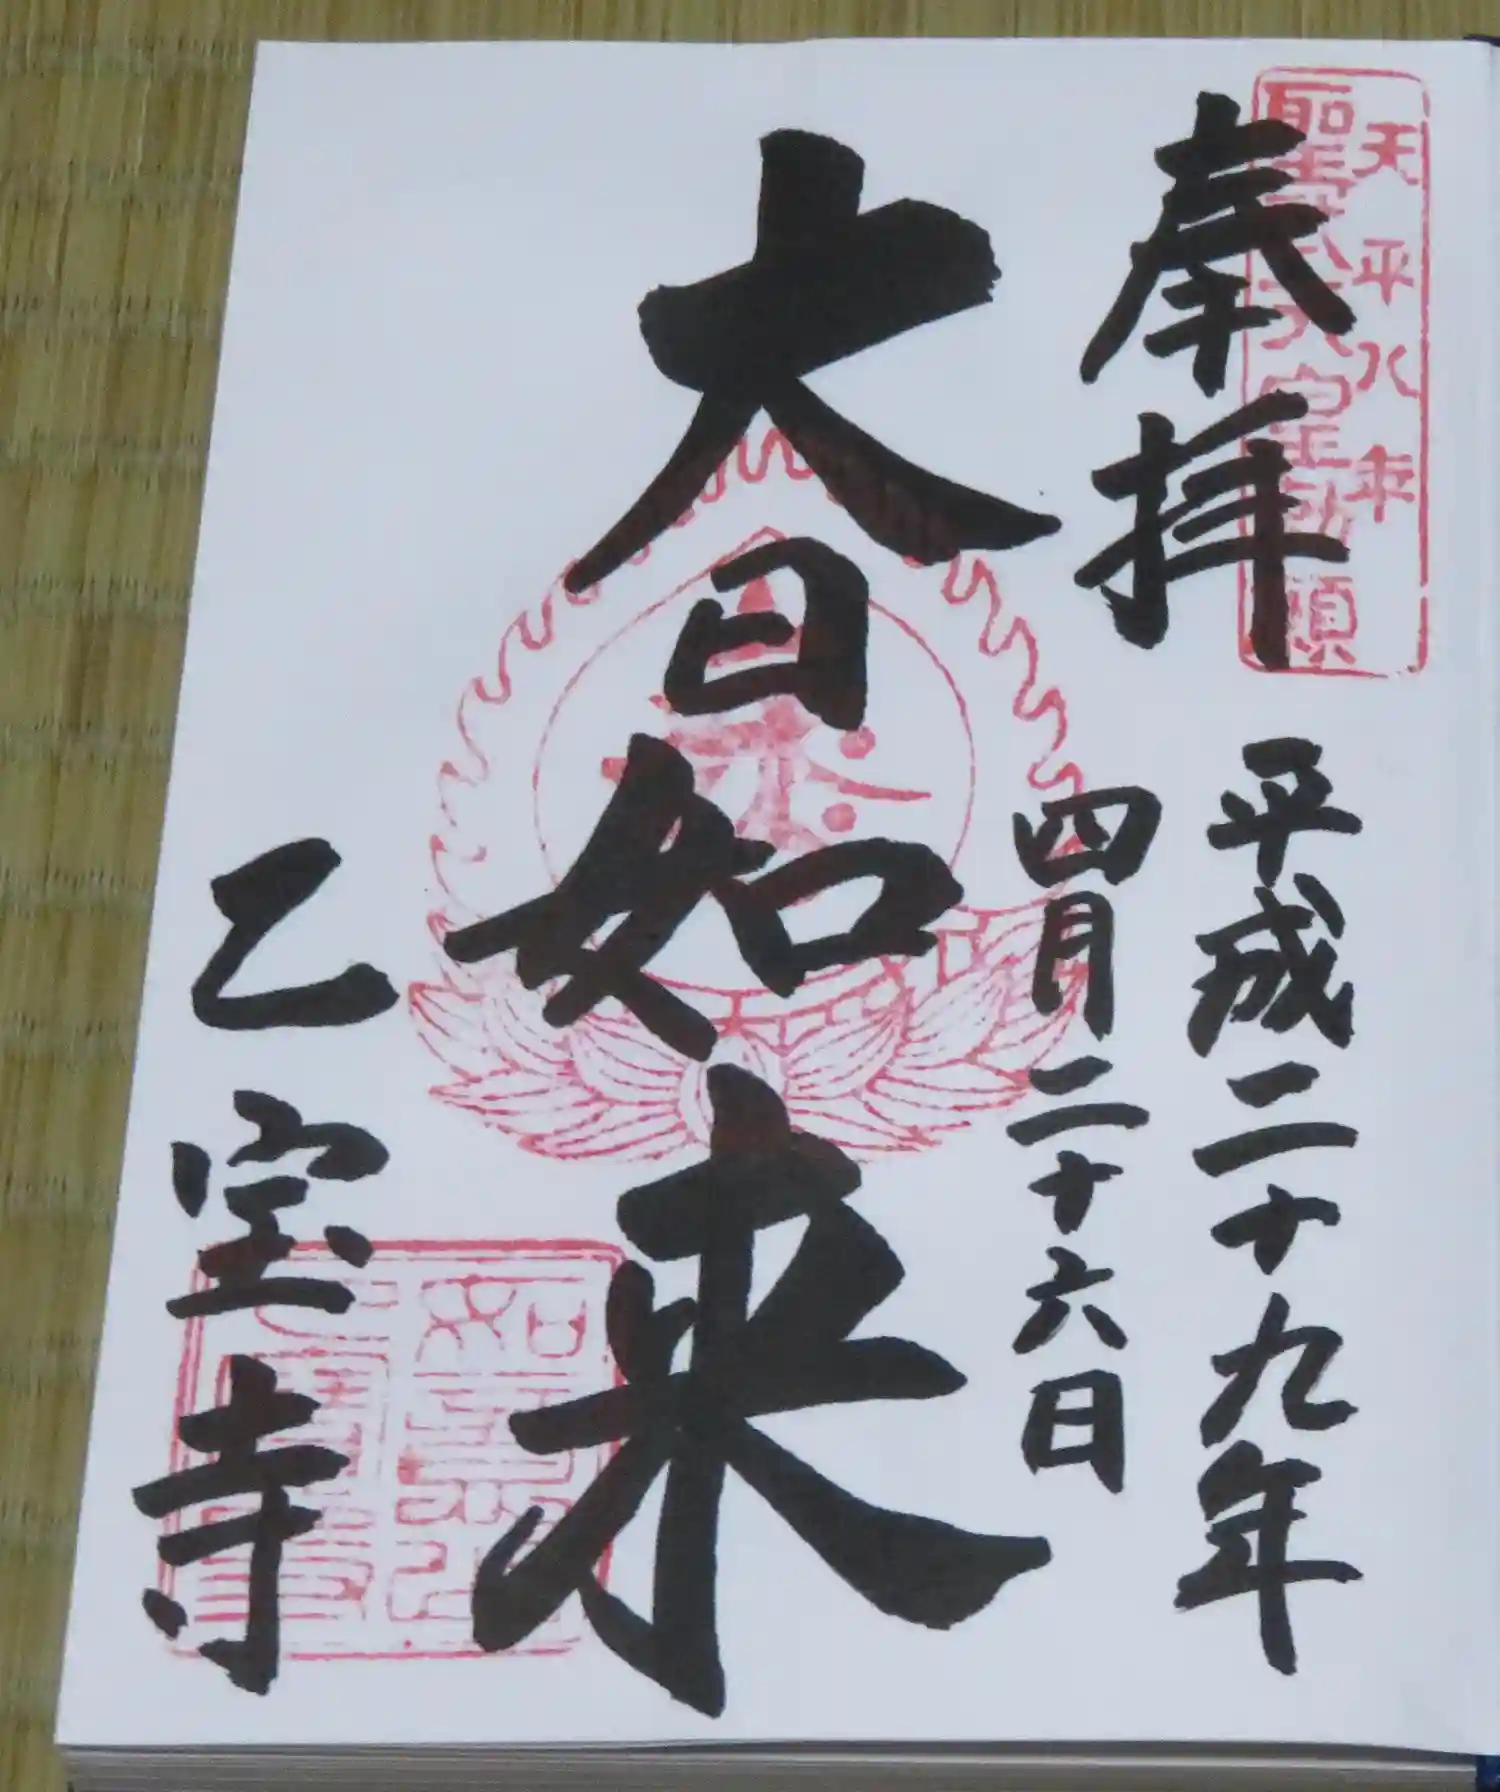 奉拝
天平八年
聖武天皇勅願
平成二十九年
四月二十六日
大日如来
乙宝寺